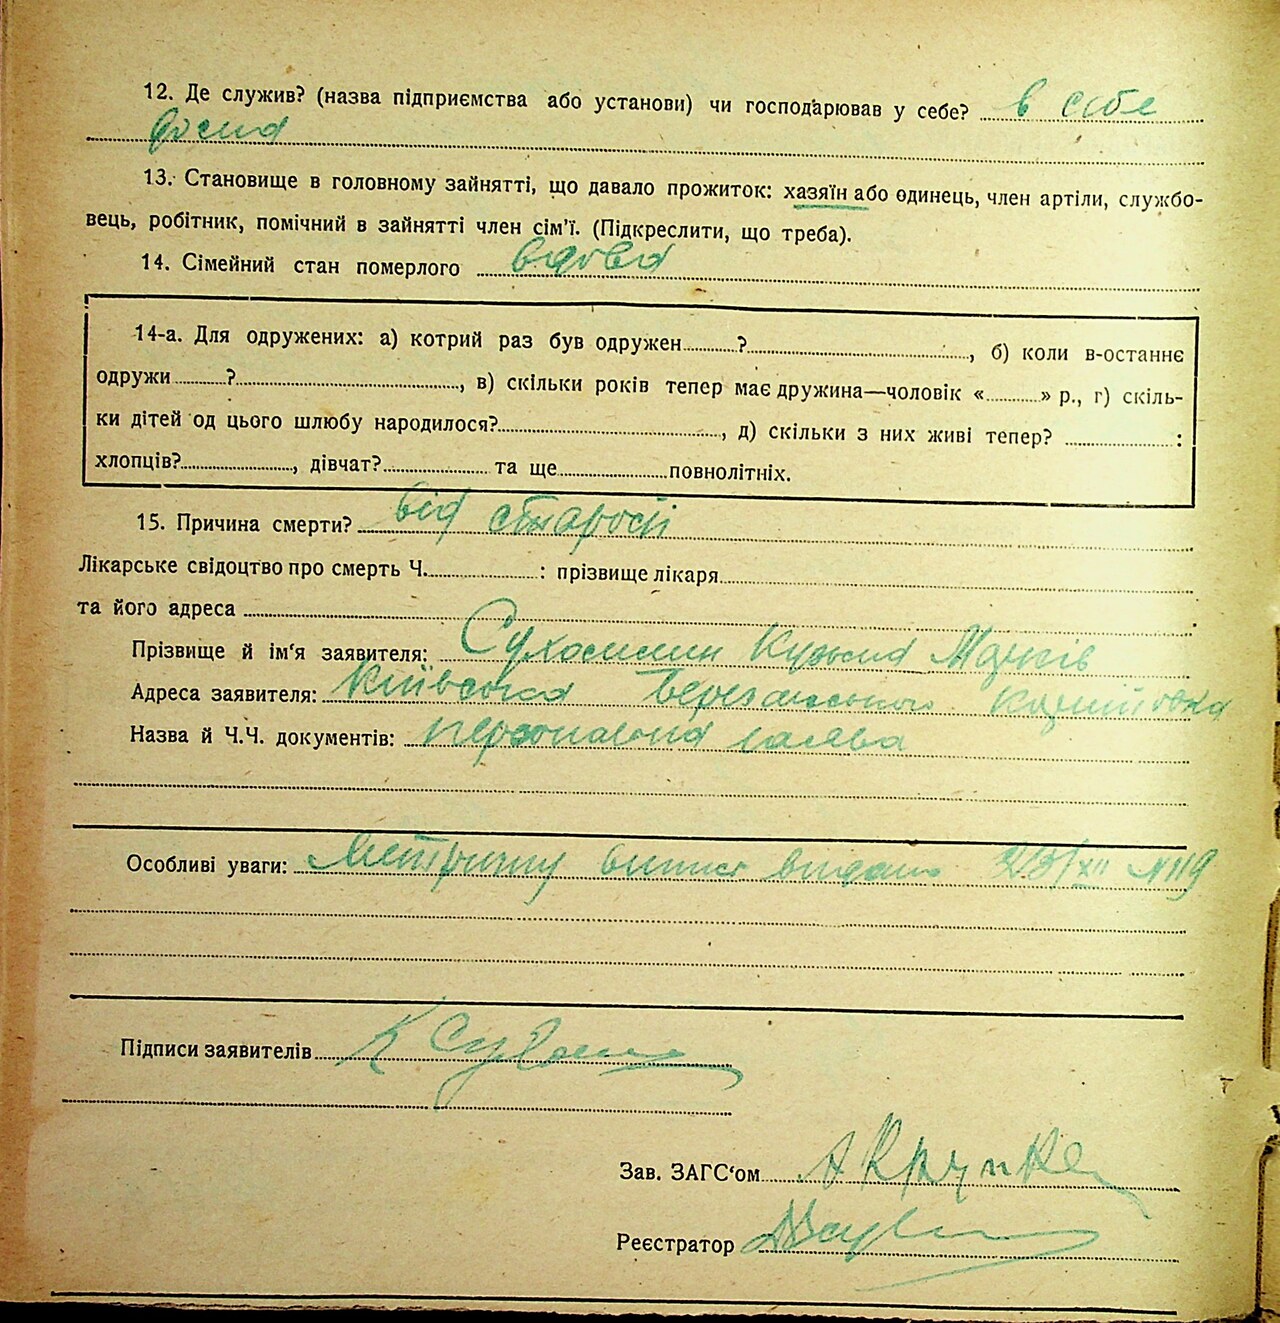 12. Де служив? (назва підприємства або установи) чи господарював у себе? в себе
дома
13. Становище в головному зайнятті, що давало прожиток: хазяїн або одинець, член артіли, службо-
вець, робітник, помічний в зайнятті член сім'ї. (Підкреслити, що треба).
14. Сімейний стан померлого вдова
14-а. Для одружених: а) котрий раз був одружен ? , б) коли в-останнє
одружи ? , в) скільки років тепер має дружина—чоловік « » р., г) скіль-
ки дітей од цього шлюбу народилося? , д) скільки з них живі тепер? :
хлопців? , дівчат? та ще повнолітніх.
15. Причина смерти? від старости
Лікарське свідоцтво про смерть Ч. : прізвище лікаря
та його адреса
Прізвище й ім'я заявителя: Сухомлин Кузьма
Адреса заявителя: Київська
Назва й Ч.Ч. документів: персональна заява
Особливі уваги: Метричну виписку видано 23/XII №119
Підписи заявителів К
Зав. ЗАГС'ом
Реєстратор